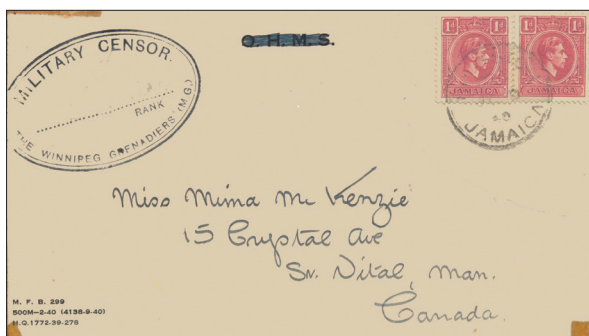 MILITARY CENSOR.
RANK
THE WINNIPEG GRENADIERS (M.G.)
O. H. M. S.
1D 1D 1D 1D
JAMAICA JAMAICA
40
JAMAICA
Miss Mima Mc Kenzie
15 Crystal Ave
St. Vital, Man.
Canada.
M. F. B. 299
500M—2-40 (4138-9-40)
H.Q. 1772-39-278